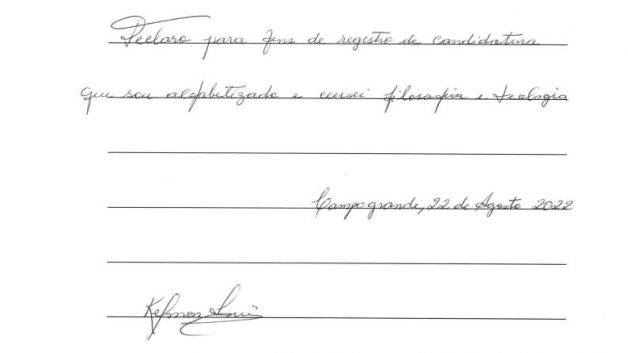 Declaro para fins de registro de candidatura
que sou alfabetizado e cursei filosofia e teologia
Campo grande, 22 de Agosto 2022